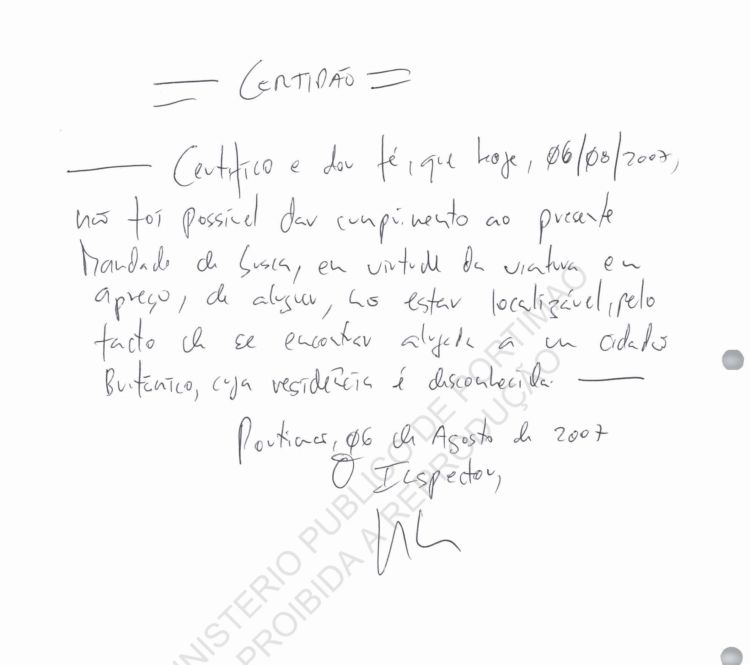 = CERTIDÃO =
—— Certifico e dou fé, que hoje, 06/08/2007,
não foi possível dar cumprimento ao presente
Mandado de Busca, em virtude da viatura em
apreço, de aluguer, não estar localizável, pelo
facto de se encontrar alugada a um cidadão
Britânico, cuja residência é desconhecida. ——
Portimão, 06 de Agosto de 2007
O Inspector,
MINISTERIO PUBLICO DE PORTIMAO
PROIBIDA A REPRODUÇÃO